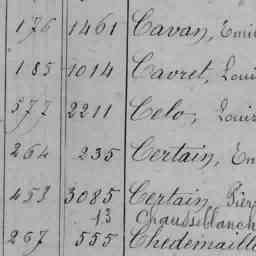 176 1461 Cavan, Emi
185 1014 Cavret, Loui
577 2211 Celo, Loui
264 235 Certain, Em
453 3085 Certain, Pier
13 Chausseblanch
267 555 Chedemaill